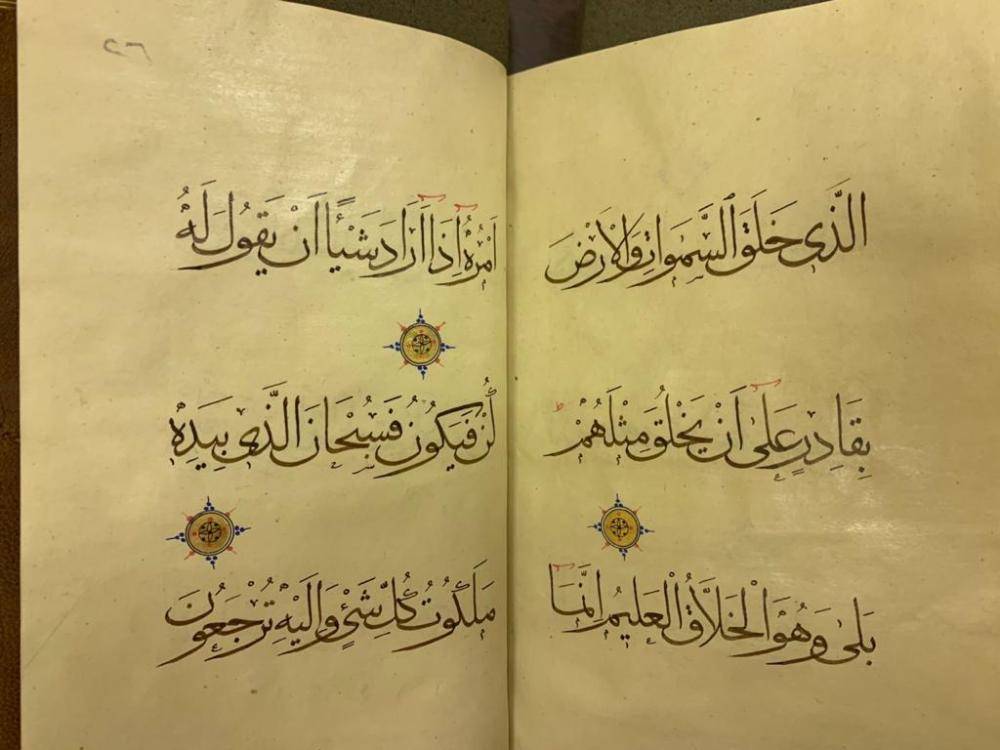 الَّذى خَلَقَ السَّمٰوَاتِ وَالْاَرْضَ
بِقَادِرٍ عَلٰى اَنْ يَخْلُقَ مِثْلَهُمْ
بَلٰى وَهُوَ الْخَلَّاقُ الْعَلِيمُ اِنَّمَا
اَمْرُهُ اِذَا اَرَادَ شَيْئًا اَنْ يَقُولَ لَهُ
كُنْ فَيَكُونُ فَسُبْحَانَ الَّذى بِيَدِهِ
مَلَكُوتُ كُلِّ شَىْءٍ وَاِلَيْهِ تُرْجَعُونَ